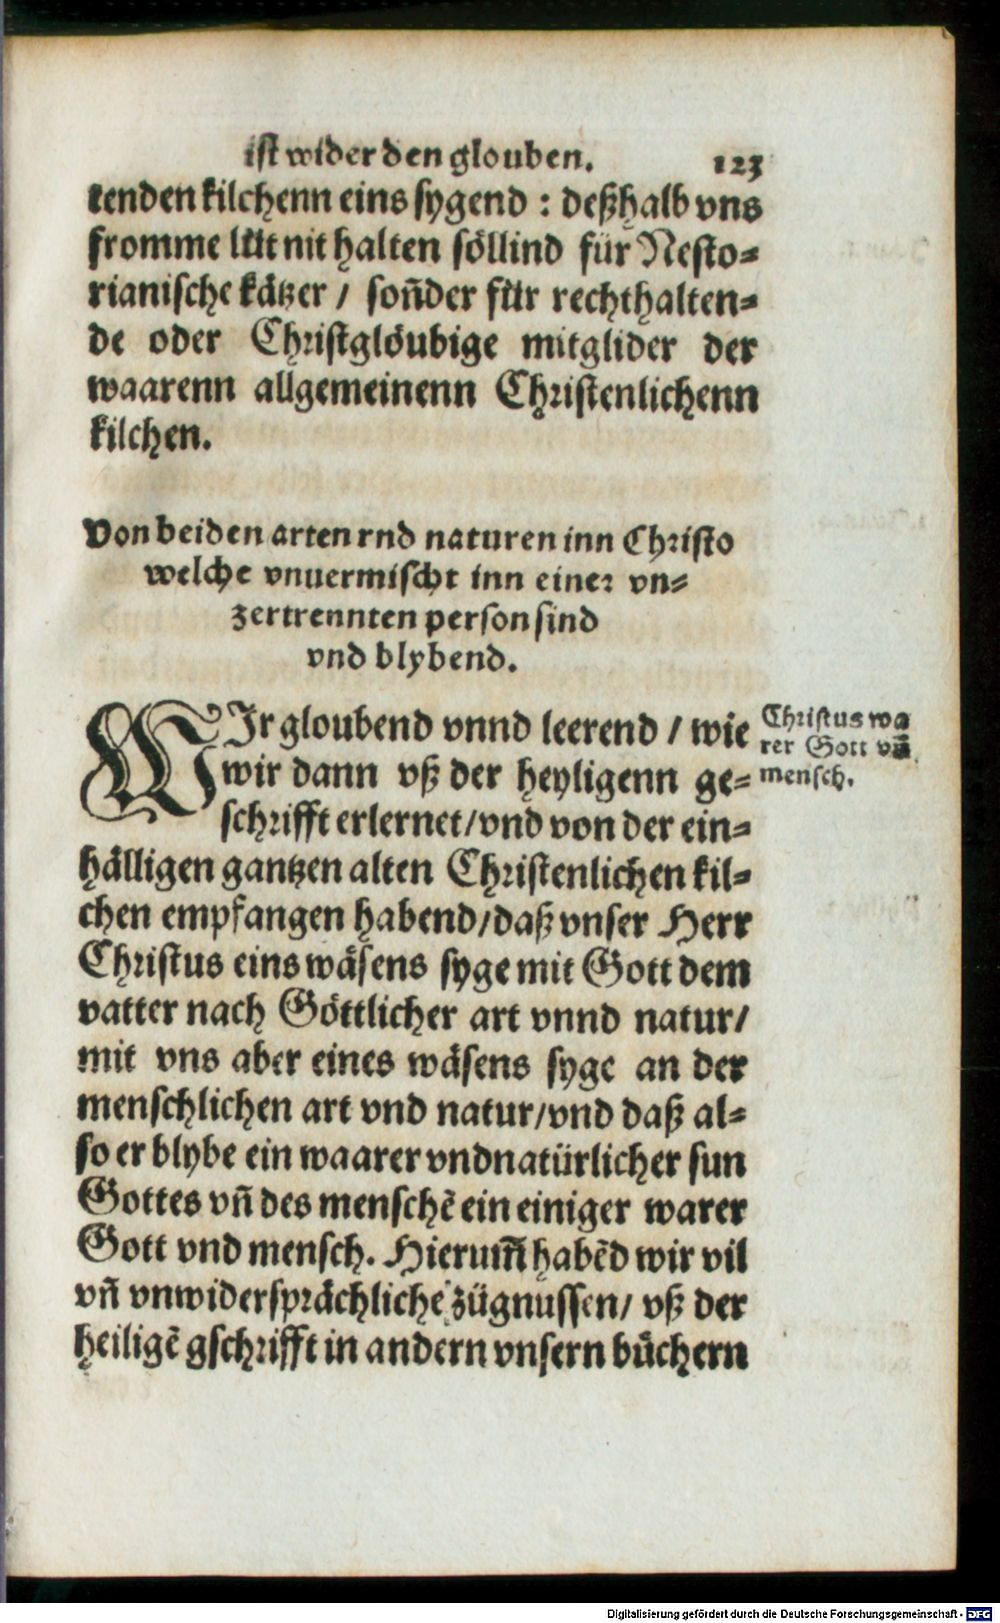 ist wider den glouben. 123
tenden kilchenn eins sygend : deßhalb vns
fromme lüt nit halten söllind für Nesto⸗
rianische kätzer / son̄der für rechthalten⸗
de oder Christglöubige mitglider der
waarenn allgemeinenn Christenlichenn
kilchen.
Von beiden arten rnd naturen inn Christo
welche vnuermischt inn einer vn⸗
zertrennten person sind
vnd blybend.
WIr gloubend vnnd leerend / wie
wir dann vß der heyligenn ge⸗
schrifft erlernet/vnd von der ein⸗
hälligen gantzen alten Christenlichen kil⸗
chen empfangen habend/daß vnser Herr
Christus eins wäsens syge mit Gott dem
vatter nach Göttlicher art vnnd natur/
mit vns aber eines wäsens syge an der
menschlichen art vnd natur/vnd daß al⸗
so er blybe ein waarer vndnatürlicher sun
Gottes vn̄ des menschē ein einiger warer
Gott vnd mensch. Hierum̄ habēd wir vil
vn̄ vnwidersprächliche zügnussen/ vß der
heiligē gschrifft in andern vnsern büchern
Christus wa
rer Gott vn̄
mensch.
Digitalisierung gefördert durch die Deutsche Forschungsgemeinschaft - DFG